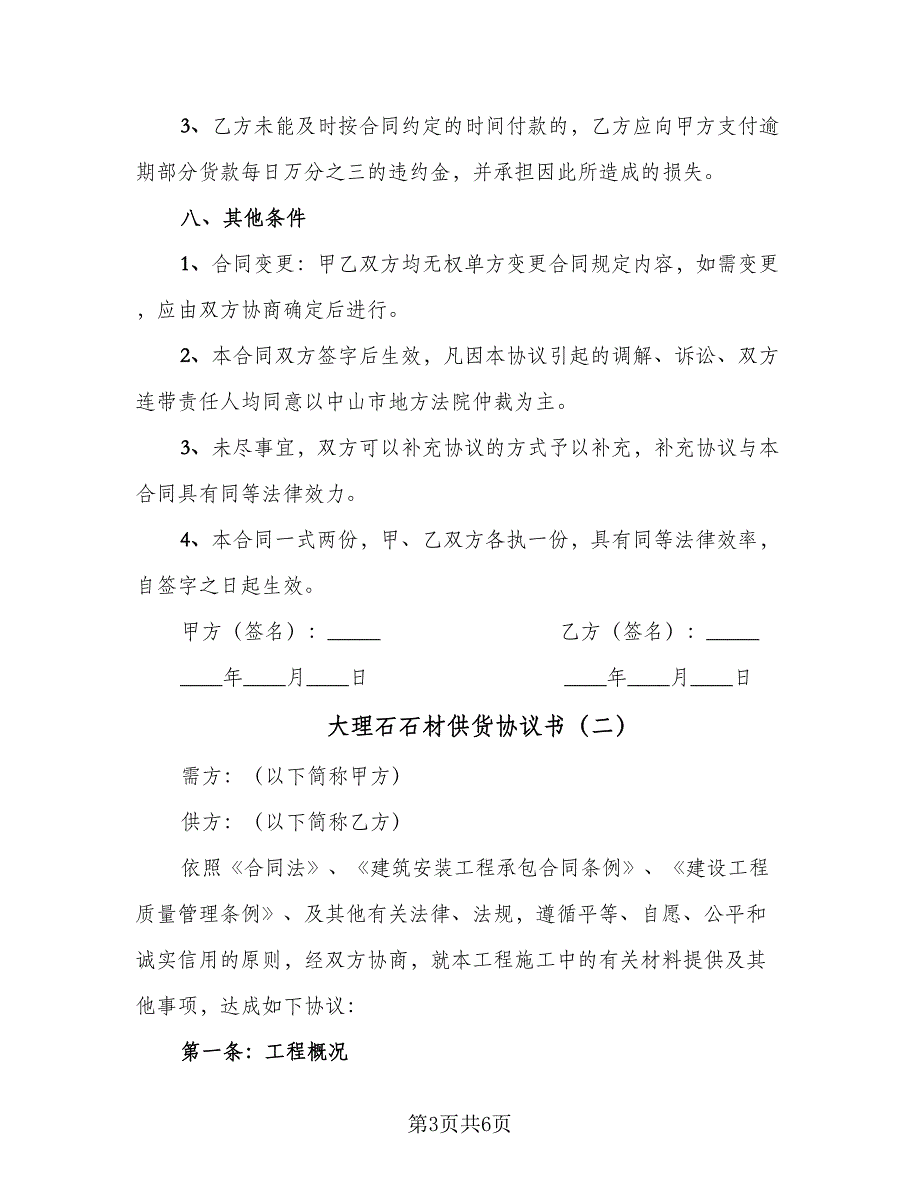 3、乙方未能及时按合同约定的时间付款的，乙方应向甲方支付逾
期部分货款每日万分之三的违约金，并承担因此所造成的损失。
八、其他条件
1、合同变更：甲乙双方均无权单方变更合同规定内容，如需变更
，应由双方协商确定后进行。
2、本合同双方签字后生效，凡因本协议引起的调解、诉讼、双方
连带责任人均同意以中山市地方法院仲裁为主。
3、未尽事宜，双方可以补充协议的方式予以补充，补充协议与本
合同具有同等法律效力。
4、本合同一式两份，甲、乙双方各执一份，具有同等法律效率，
自签字之日起生效。
甲方（签名）：_____ 乙方（签名）：_____
____年____月____日 ____年____月____日
大理石石材供货协议书（二）
需方：（以下简称甲方）
供方：（以下简称乙方）
依照《合同法》、《建筑安装工程承包合同条例》、《建设工程
质量管理条例》、及其他有关法律、法规，遵循平等、自愿、公平和
诚实信用的原则，经双方协商，就本工程施工中的有关材料提供及其
他事项，达成如下协议：
第一条：工程概况
第3页共6页